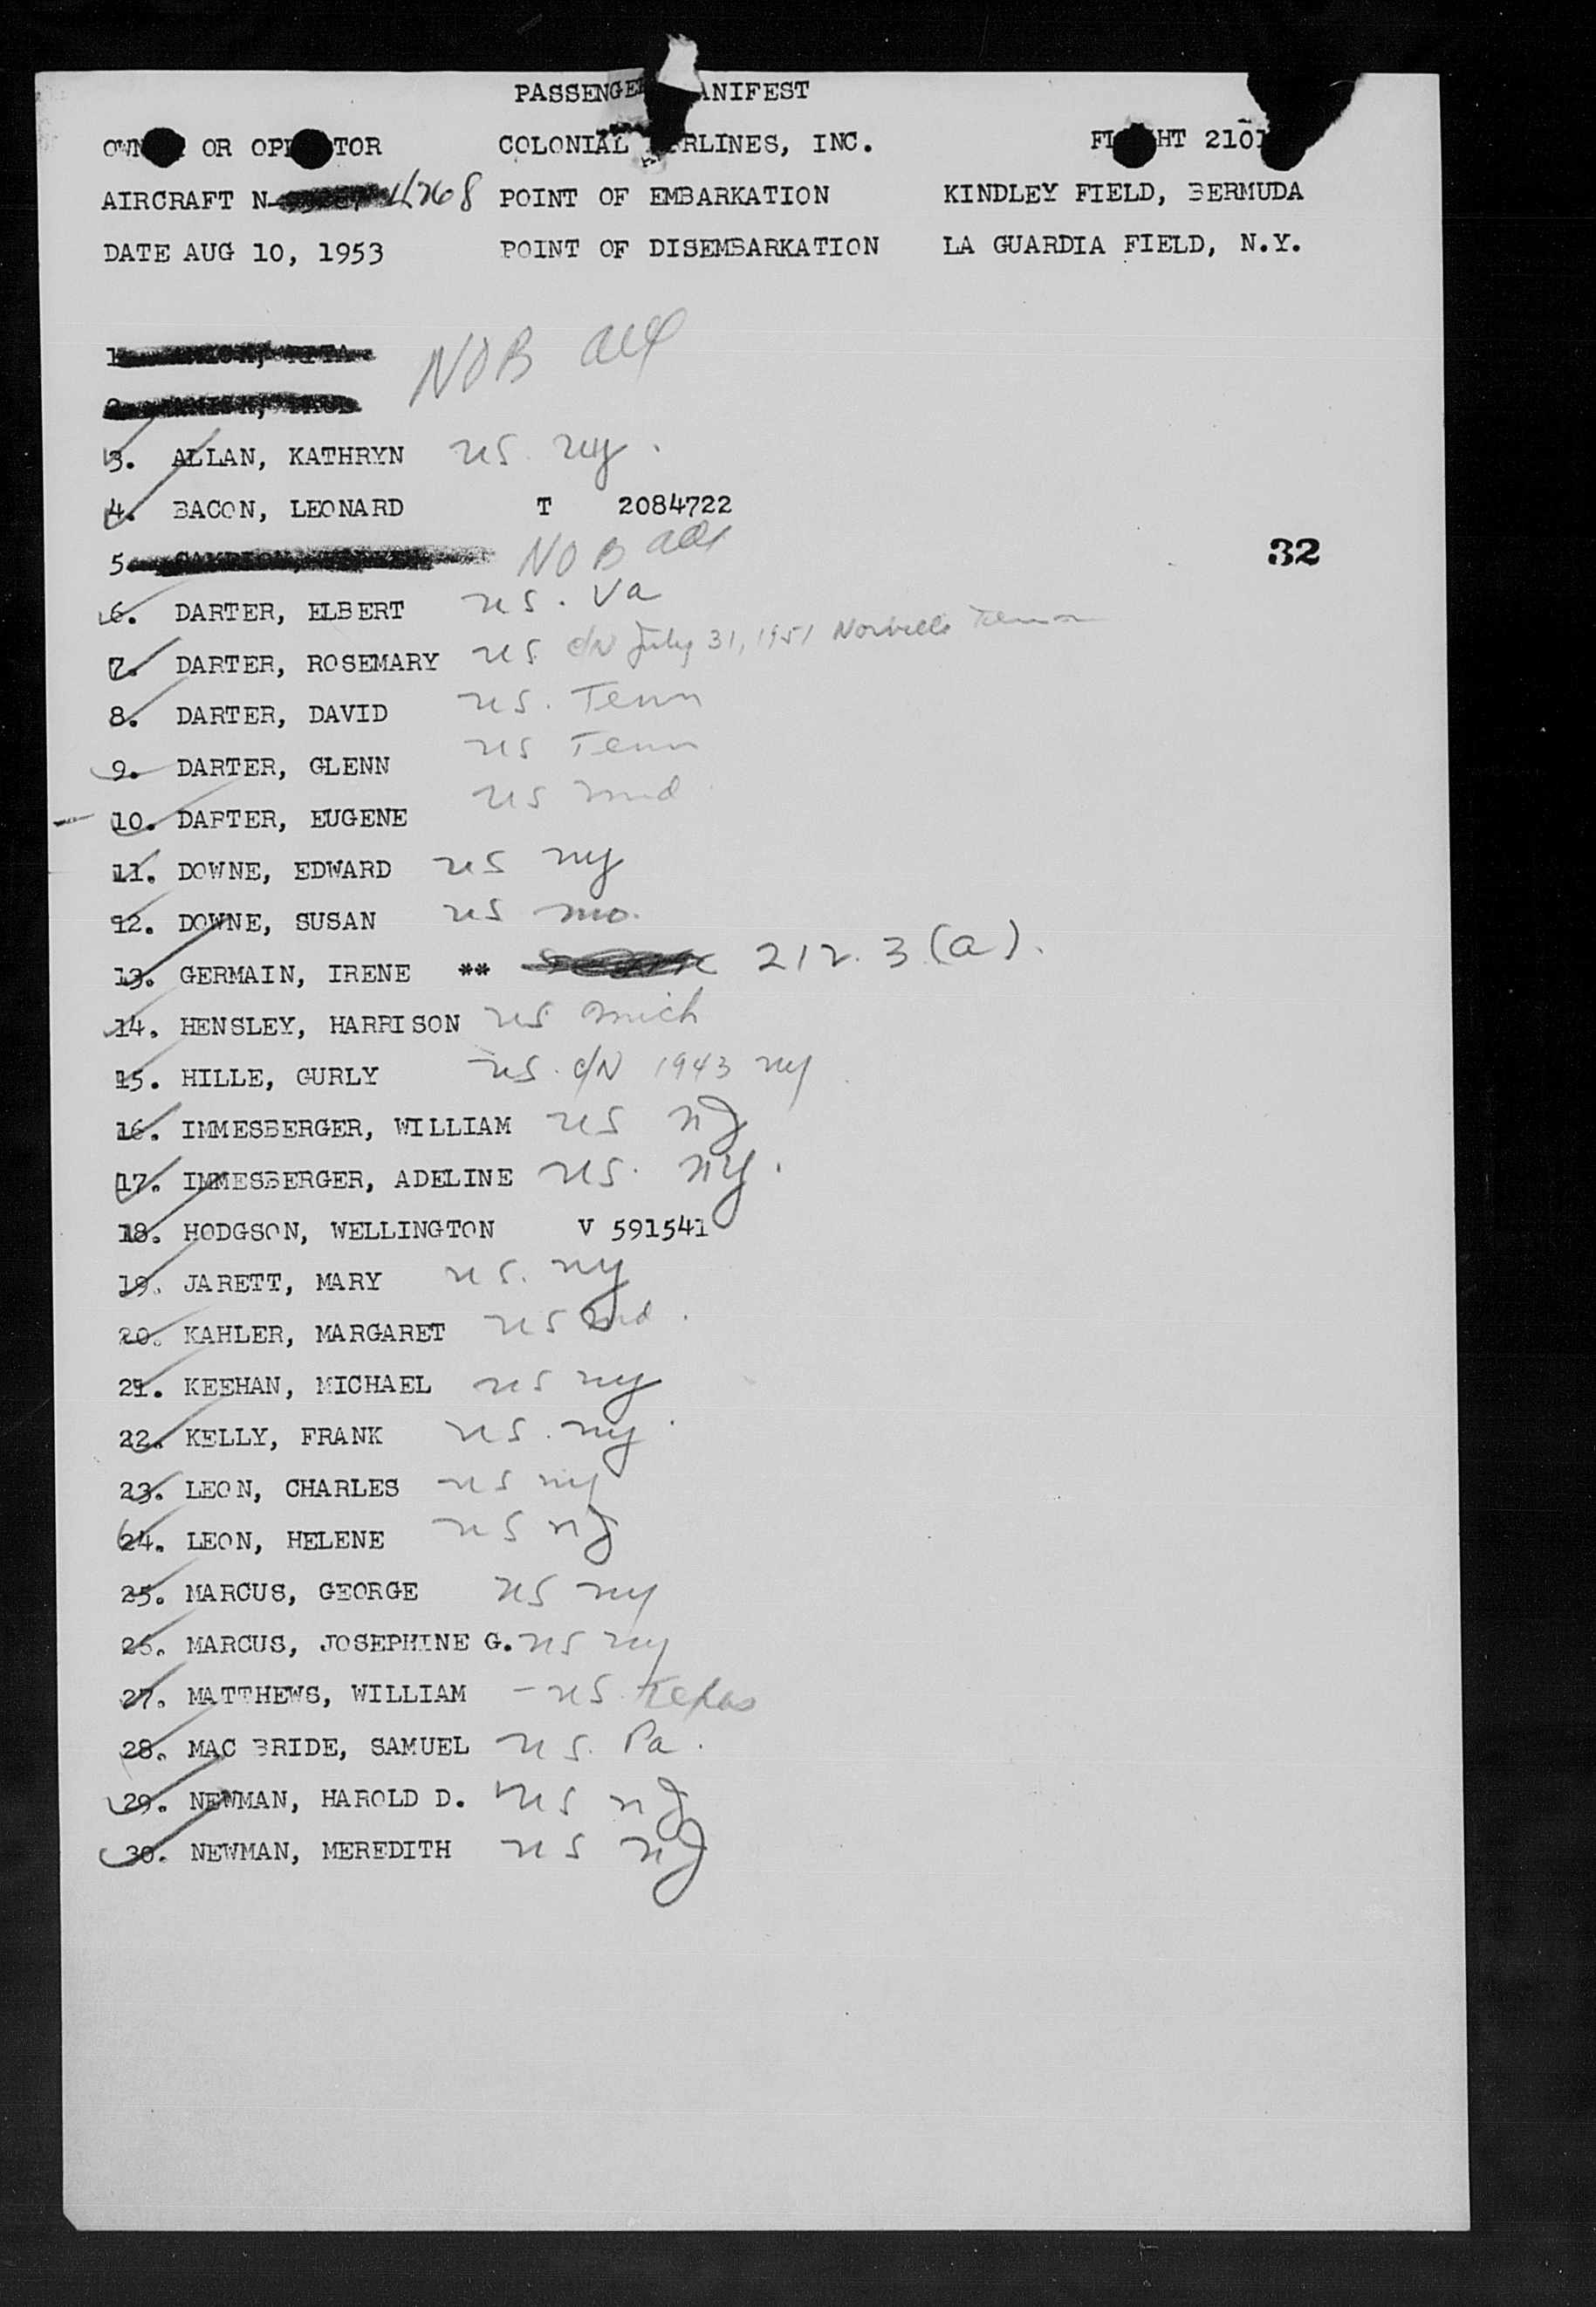 PASSENGE ANIFEST
OWN OR OP TOR COLONIAL RLINES, INC. F HT 2101
AIRCRAFT N 4268 POINT OF EMBARKATION KINDLEY FIELD, BERMUDA
DATE AUG 10, 1953 POINT OF DISEMBARKATION LA GUARDIA FIELD, N.Y.
1 NOB
3. ALLAN, KATHRYN US. NY.
4. BACON, LEONARD T 2084722
5 NOB
32
6. DARTER, ELBERT US. Va
7. DARTER, ROSEMARY US c/N July 31, 1951 Tenn
8. DARTER, DAVID US. Tenn
9. DARTER, GLENN US Tenn
10. DARTER, EUGENE US
11. DOWNE, EDWARD US NY
12. DOWNE, SUSAN US Mo.
13. GERMAIN, IRENE ** 212.3(a).
14. HENSLEY, HARRISON US Mich
15. HILLE, GURLY US. c/N 1943 NY
16. IMMESBERGER, WILLIAM US NJ
17. IMMESBERGER, ADELINE US. NY.
18. HODGSON, WELLINGTON V 591541
19. JARETT, MARY US. NY
20. KAHLER, MARGARET US
21. KEEHAN, MICHAEL US NY
22. KELLY, FRANK US. NY
23. LEON, CHARLES US NY
24. LEON, HELENE US NJ
25. MARCUS, GEORGE US NY
26. MARCUS, JOSEPHINE G. US NY
27. MATTHEWS, WILLIAM - US Texas
28. MAC BRIDE, SAMUEL US. Pa.
29. NEWMAN, HAROLD D. US NJ
30. NEWMAN, MEREDITH US NJ